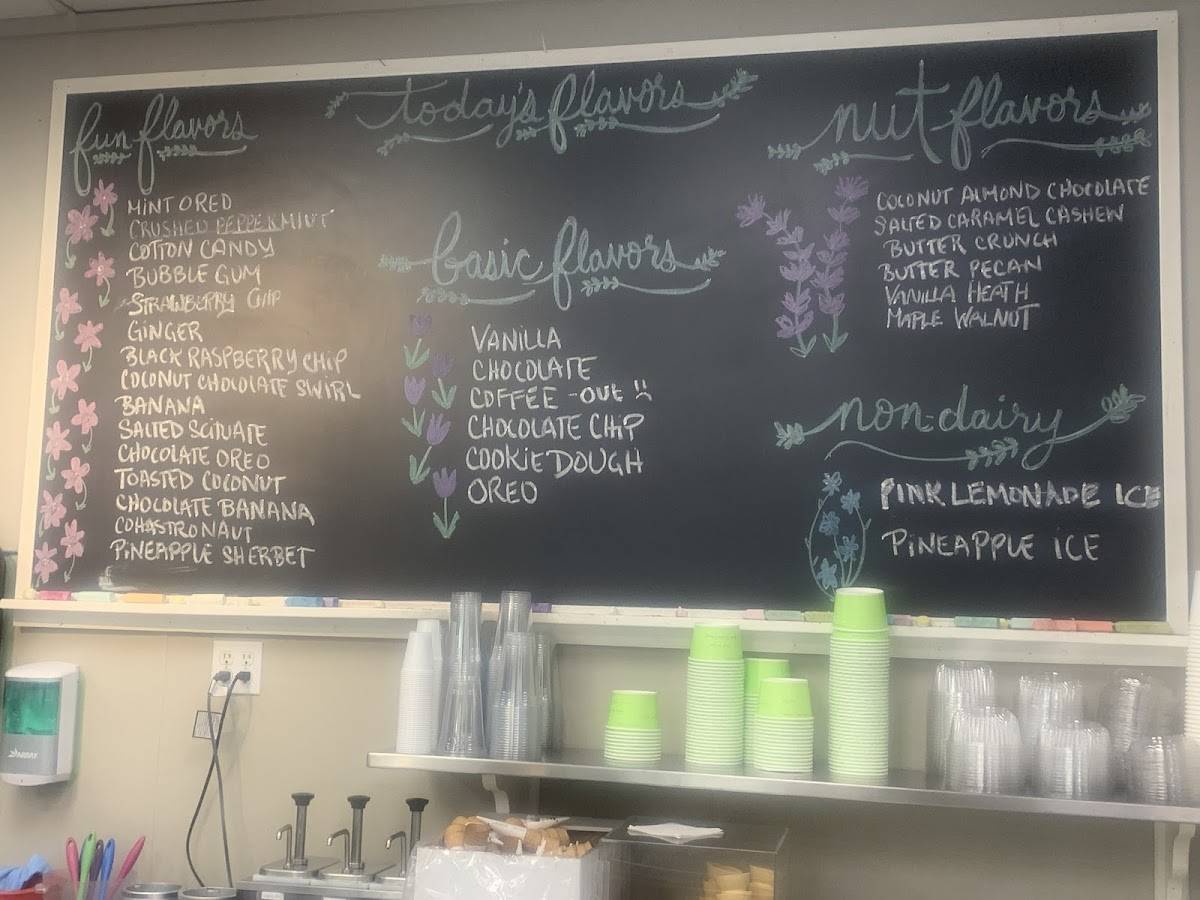 today's flavors
fun flavors
MINT OREO
CRUSHED PEPPERMINT
COTTON CANDY
BUBBLE GUM
STRAWBERRY CHIP
GINGER
BLACK RASPBERRY CHIP
COCONUT CHOCOLATE SWIRL
BANANA
SALTED SCITUATE
CHOCOLATE OREO
TOASTED COCONUT
CHOCOLATE BANANA
COHASTRONAUT
PINEAPPLE SHERBET
basic flavors
VANILLA
CHOCOLATE
COFFEE - OUT :(
CHOCOLATE CHIP
COOKIE DOUGH
OREO
nut flavors
COCONUT ALMOND CHOCOLATE
SALTED CARAMEL CASHEW
BUTTER CRUNCH
BUTTER PECAN
VANILLA HEATH
MAPLE WALNUT
non-dairy
PINK LEMONADE ICE
PINEAPPLE ICE